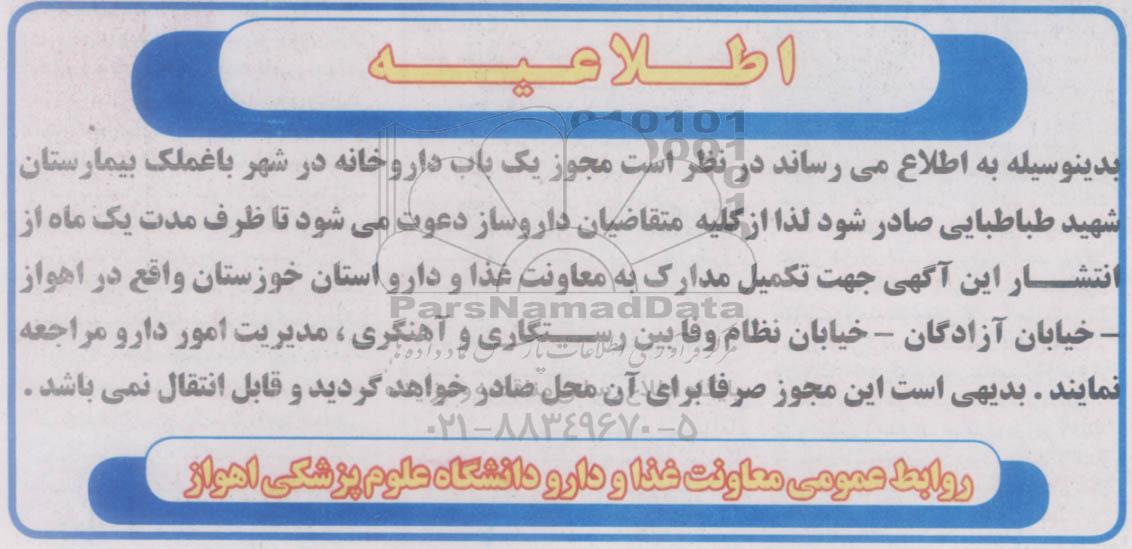 اطلاعیه
بدینوسیله به اطلاع می رساند در نظر است مجوز یک باب داروخانه در شهر باغملک بیمارستان
شهید طباطبایی صادر شود لذا از کلیه متقاضیان داروساز دعوت می شود تا ظرف مدت یک ماه از
انتشار این آگهی جهت تکمیل مدارک به معاونت غذا و دارو استان خوزستان واقع در اهواز
– خیابان آزادگان – خیابان نظام وفا بین رستگاری و آهنگری ، مدیریت امور دارو مراجعه
نمایند . بدیهی است این مجوز صرفا برای آن محل صادر خواهد گردید و قابل انتقال نمی باشد .
روابط عمومی معاونت غذا و دارو دانشگاه علوم پزشکی اهواز
ParsNamadData
۰۲۱-۸۸۳۴۹۶۷۰-۵